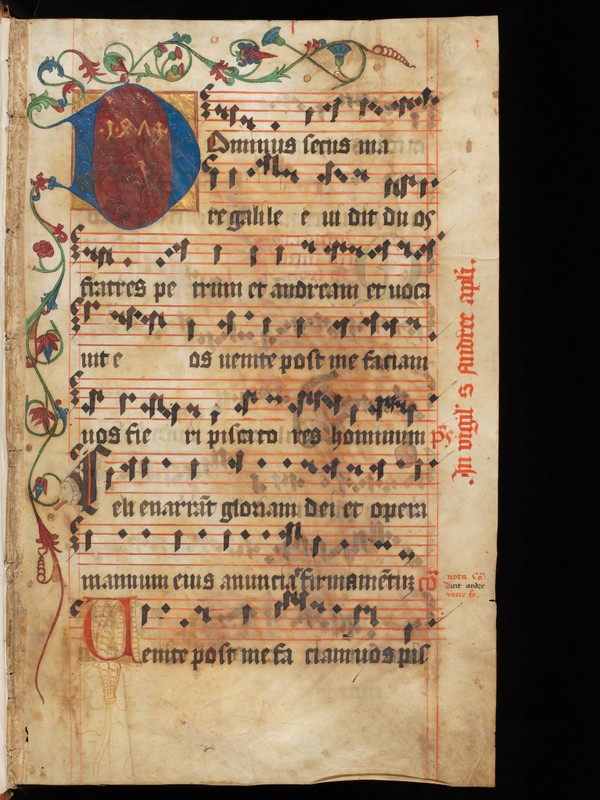 Dominus secus ma
re galile e ui dit du os
fratres pe trum et andream et uoca
uit e os uenite post me faciam
uos fie ri piscato res hominum ps
Celi enarrāt gloriam dei et opera
manuum eius anunciat firmamētū co
Uenite post me fa ciam uos pis
In vigil' s Andree apli.
nota Co
Dicit andre